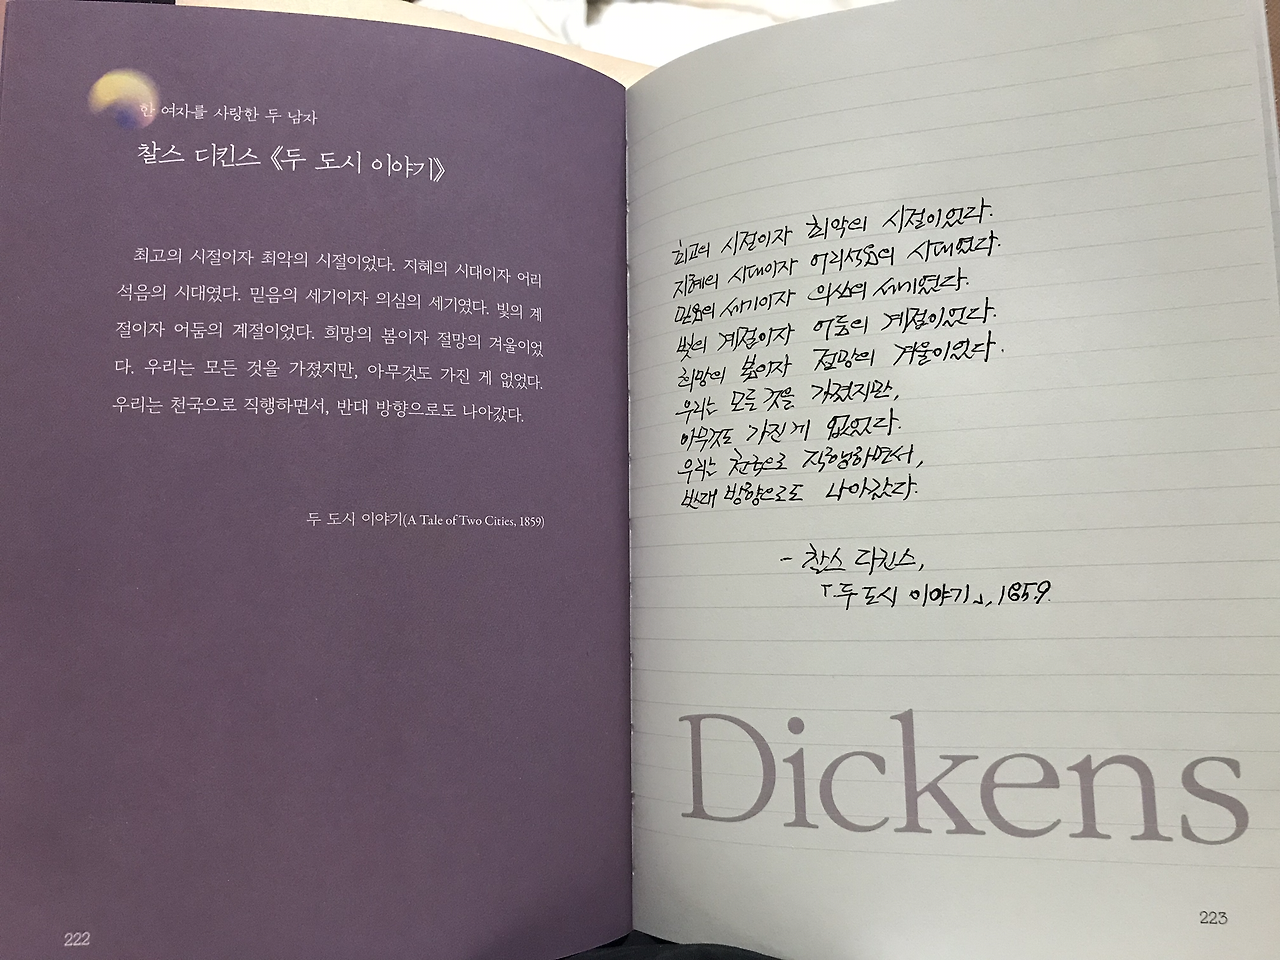 한 여자를 사랑한 두 남자
찰스 디킨스 《두 도시 이야기》
최고의 시절이자 최악의 시절이었다. 지혜의 시대이자 어리
석음의 시대였다. 믿음의 세기이자 의심의 세기였다. 빛의 계
절이자 어둠의 계절이었다. 희망의 봄이자 절망의 겨울이었
다. 우리는 모든 것을 가졌지만, 아무것도 가진 게 없었다.
우리는 천국으로 직행하면서, 반대 방향으로도 나아갔다.
두 도시 이야기(A Tale of Two Cities, 1859)
222
최고의 시절이자 최악의 시절이었다.
지혜의 시대이자 어리석음의 시대였다.
믿음의 세기이자 의심의 세기였다.
빛의 계절이자 어둠의 계절이었다.
희망의 봄이자 절망의 겨울이었다.
우리는 모든 것을 가졌지만,
아무것도 가진 게 없었다.
우리는 천국으로 직행하면서,
반대 방향으로도 나아갔다.
- 찰스 디킨스,
「두 도시 이야기」, 1859.
Dickens
223